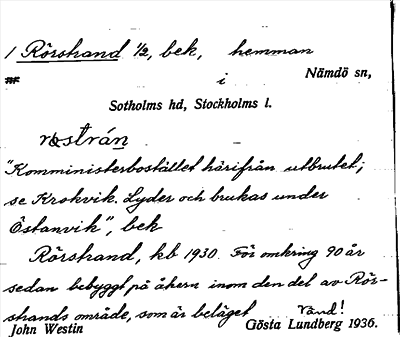 1 Rörstrand 1/2, bek, hemman
i Nämdö sn,
Sotholms hd, Stockholms l.
"Komministerbostället härifrån utbrutet;
se Krokvik. Lyder och brukas under
Östanvik", bek
Rörstrand, kb 1930. För omkring 90 år
sedan bebyggt på åkern inom den del av Rör-
strands område, som är beläget Vänd!
John Westin Gösta Lundberg 1936.